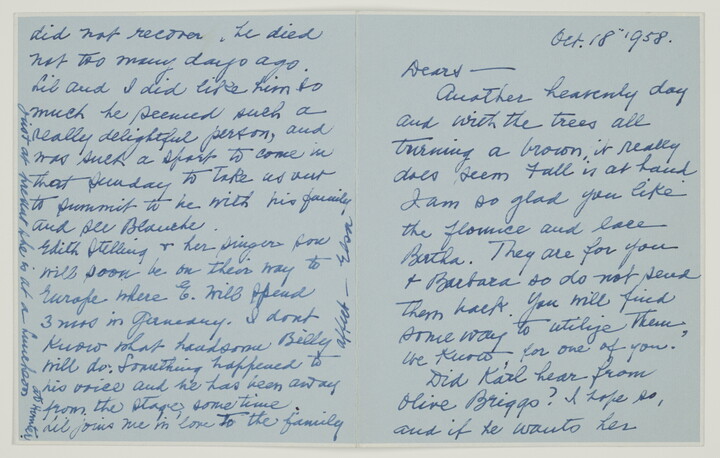 Oct. 18" 1958.
Dears —
Another heavenly day
and with the trees all
turning a brown, it really
does seem Fall is at hand
I am so glad you like
the flounce and lace
Bertha. They are for you
& Barbara so do not send
them back. You will find
some way to utilize them,
we know, for one of you."
Did Karl hear from
Olive Briggs? I hope so,
and if he wants her
did not recover, he died
not too many days ago.
Lil and I did like him so
much he seemed such a
really delightful person, and
was such a sport to come in
that Sunday to take us out
to Summit to be with his family
and see Blanche.
Edith Stelling & her singer son
will soon be on their way to
Europe where E. will spend
3 mos in Germany. I dont
know what handsome Billy
will do. Something happened to
his voice and he has been away
from the stage, some time.
Lil joins me in love to the family
just at present she is at a luncheon
affect — Elsa —